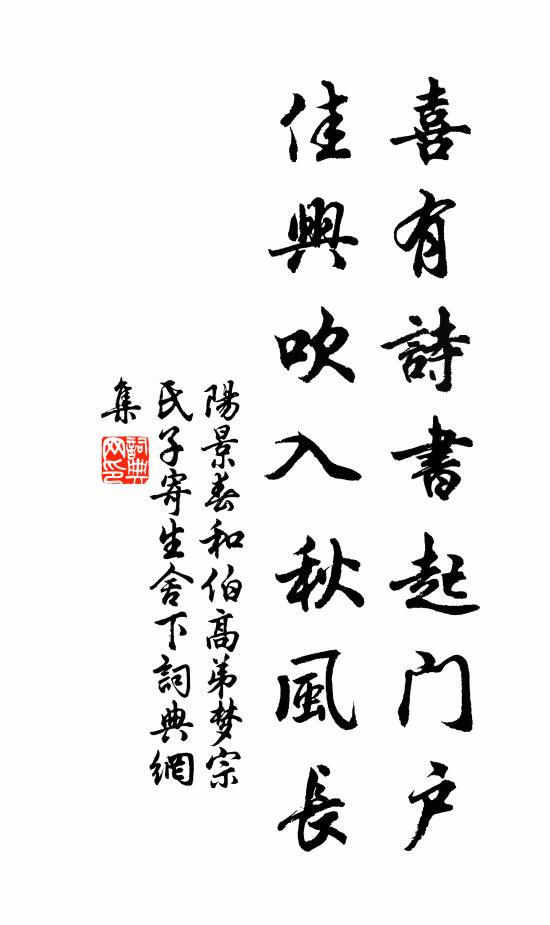 喜有詩書起门户
佳興吹入秋風長
陽景春和伯高弟梦宗
氏子寄生舍下詞典網
集
詞典
网印